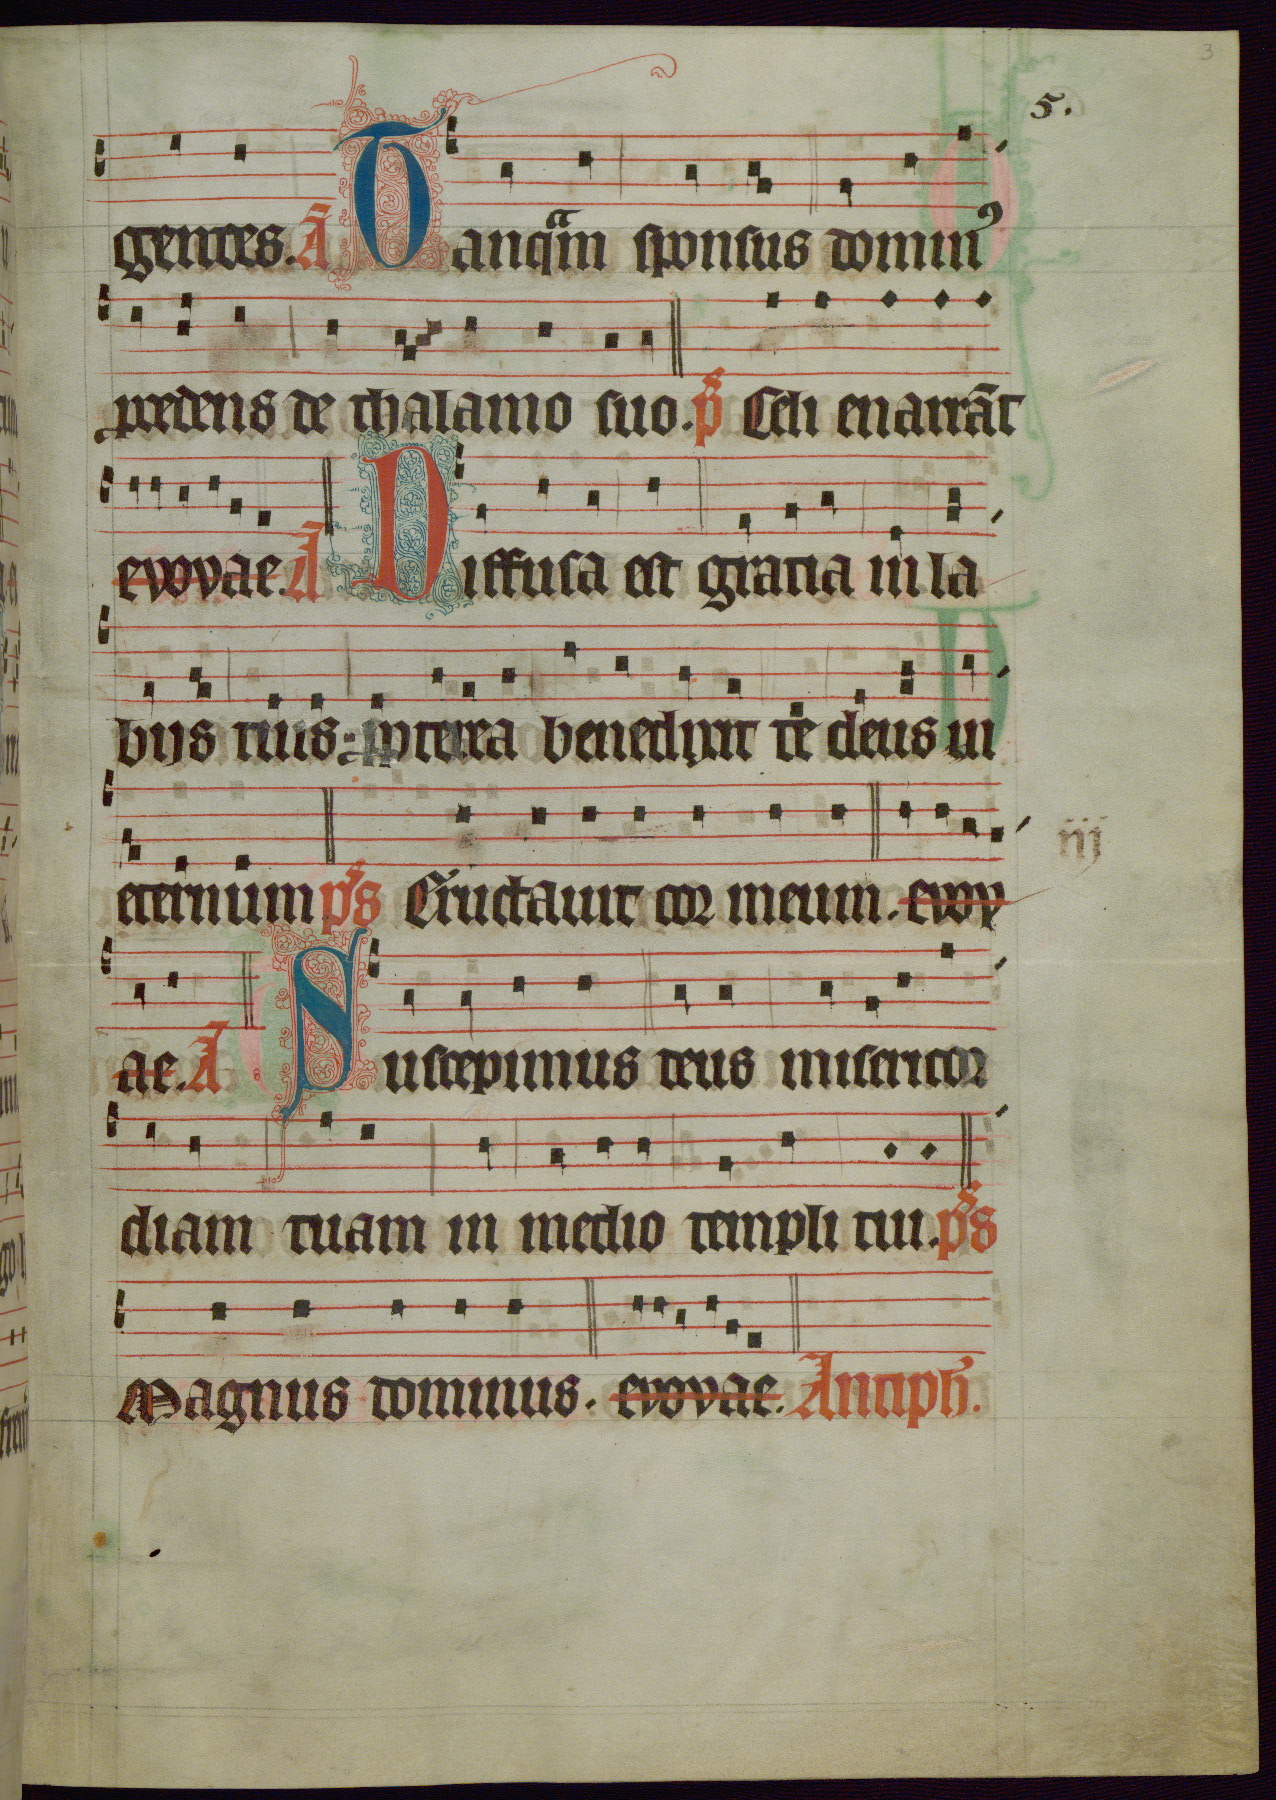 3
5.
gentes. A Tanqᵃm sponsus dominꝰ
procedens de thalamo suo. ps̄ Celi enarrāt
evovae. A Diffusa est gratia in la
bijs tuis: ꝓpterea benedixit te deus in
eternum ps Eructauit cor meum. evov
iij
ae. A Suscepimus deus misericor
diam tuam in medio templi tui. ps
Magnus dominus. evovae. Antiph.